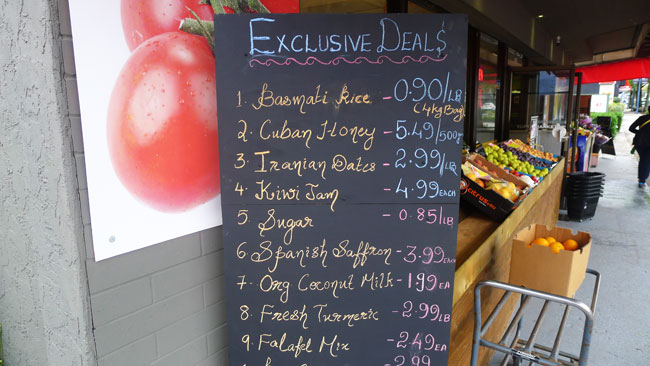 EXCLUSIVE DEAL$
1. Basmati Rice - 0.90/LB
(4kg Bag)
2. Cuban Honey - 5.49/500g
3. Iranian Dates - 2.99/LB
4. Kiwi Jam - 4.99 EACH
5. Sugar - 0.85/LB
6. Spanish Saffron - 3.99 Each
7. Org Coconut Milk - 1.99 EA
8. Fresh Turmeric - 2.99 LB
9. Falafel Mix - 2.49 EA
- 2.99